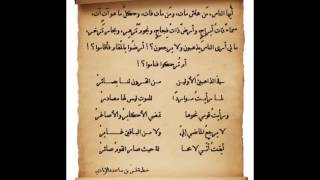 أيها الناس، من عاش مات، ومن مات فات، وكل ما هو آت آت،
سماء ذات أبراج، وأرض ذات فجاج، ونجوم تزهر، وبحار تزخر،
ما لي أرى الناس يذهبون ولا يرجعون؟! أرضوا بالمقام فأقاموا؟!
أم تركوا فناموا؟!
في الذاهبين الأولين من القرون لنا بصائر
لما رأيت مواردا للموت ليس لها مصادر
ورأيت قومي نحوها تمضي الأكابر والأصاغر
لا يرجع الماضي إلي ولا من الباقين غابر
أيقنت أني لا محا لة حيث صار القوم صائر
خطبة قس بن ساعدة الإيادي